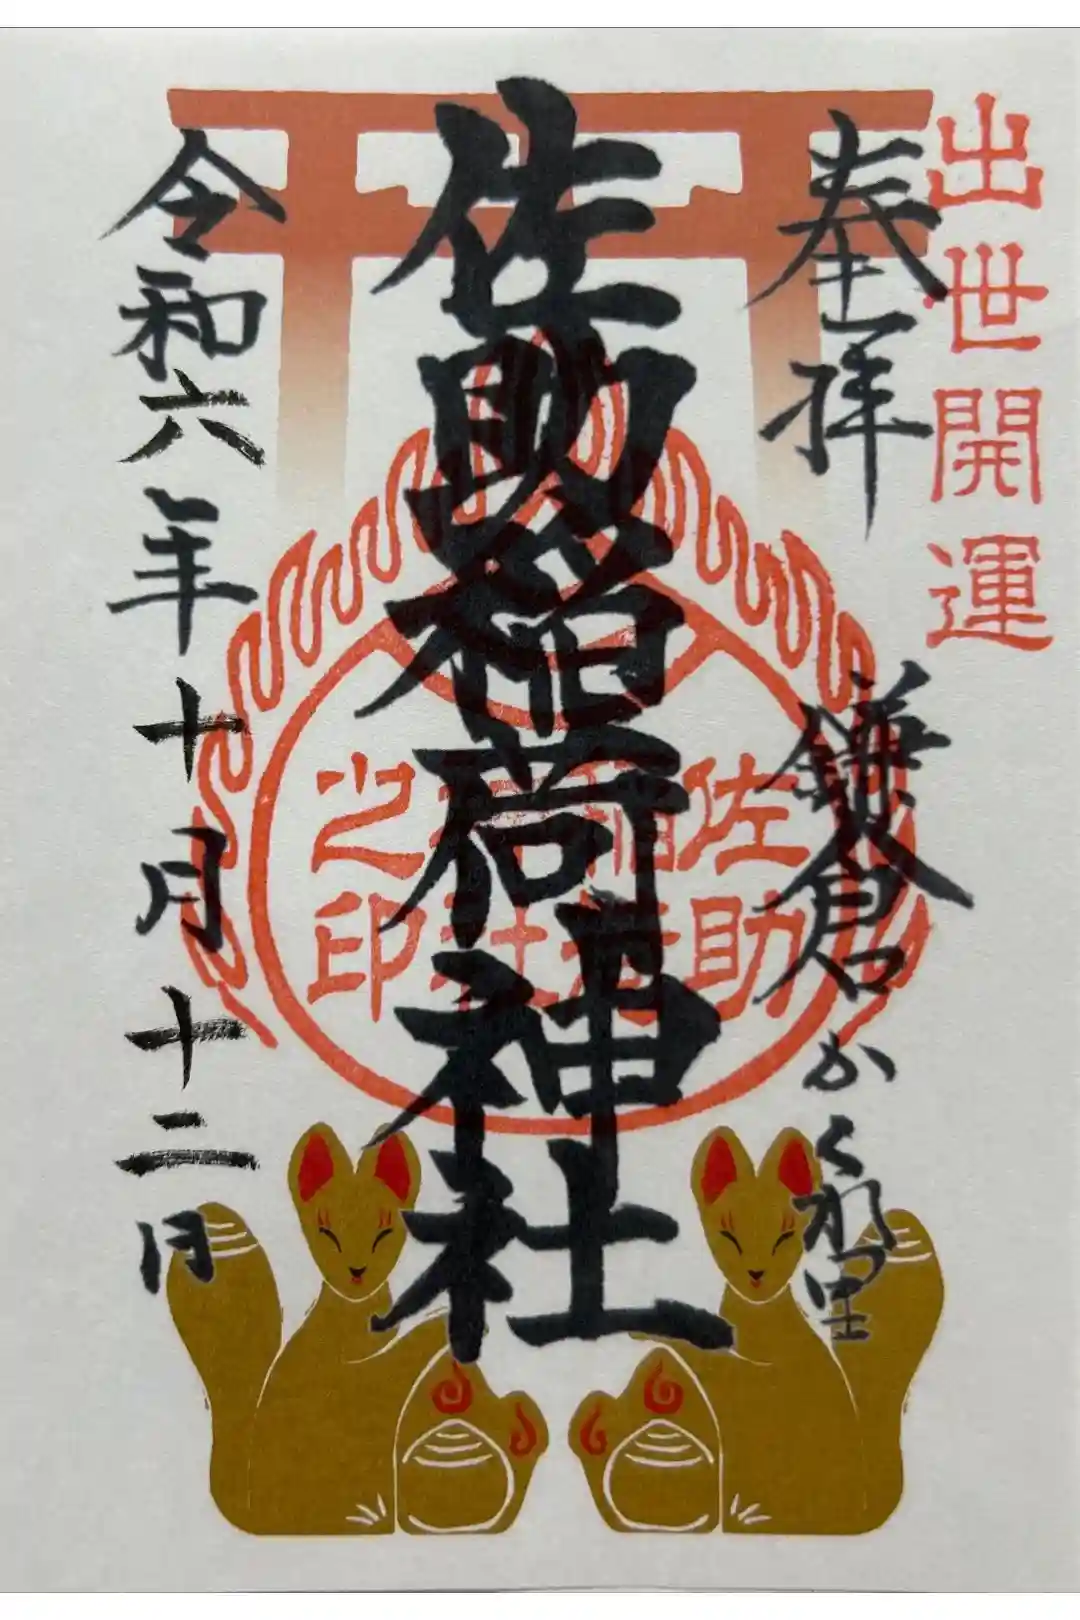 出世開運
奉拝
鎌倉かくれ里
佐助稲荷神社
佐助
稲荷
神社
之印
令和六年十月十二日